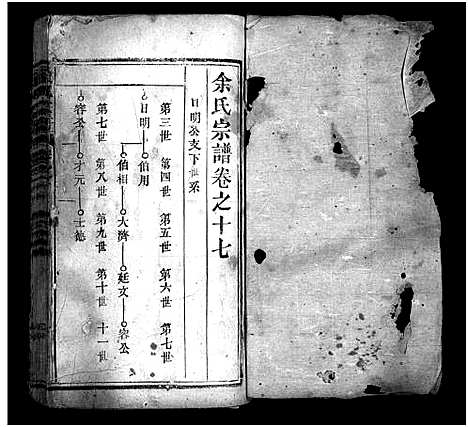 余氏宗譜卷之十七
日明公支下世系
第三世 第四世 第五世 第六世 第七世
日明 伯用
伯相 大濟 廷文 容公
第七世 第八世 第九世 第十世 十一世
容公 才元 士德